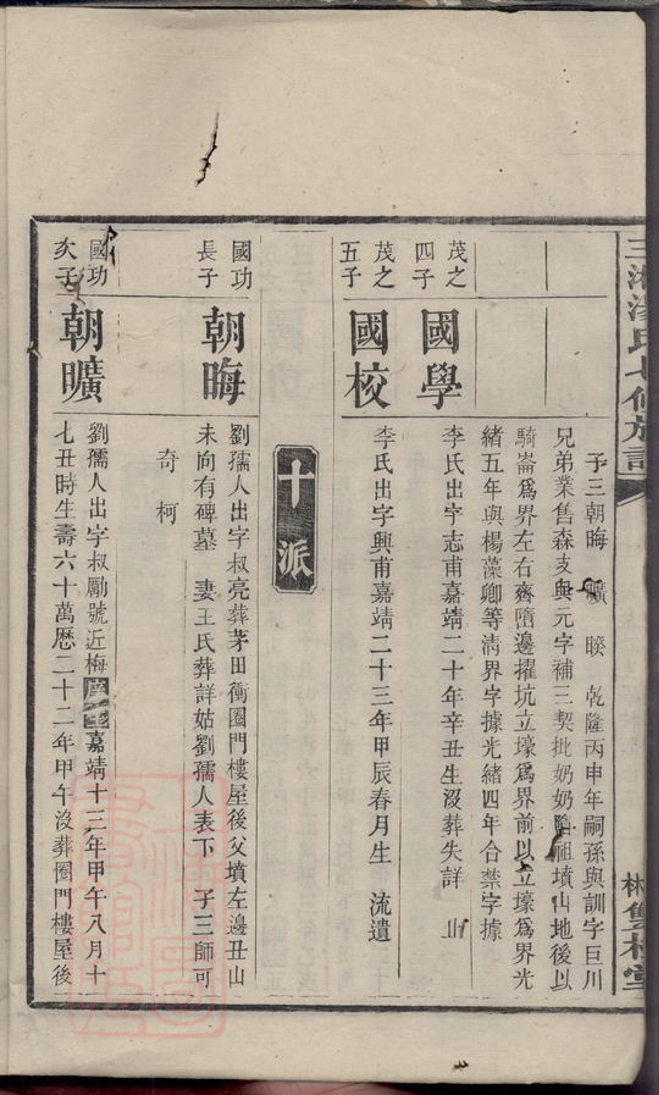 三湘湯氏七修族譜
子三朝晦 曠 睽 乾隆丙申年嗣孫與訓字巨川
兄弟業售森支與元字補三契批奶奶隋祖墳山地後以
騎崙爲界左右齊隋邊擢坑立壕爲界前以立壕爲界光
緒五年與楊藻卿等淸界字據光緒四年合禁字據
茂之四子
國學
李氏出字志甫嘉靖二十年辛丑生沒葬失詳 止
茂之五子
國校
李氏出字興甫嘉靖二十三年甲辰春月生 流遺
十派
國功長子
朝晦
劉孺人出字叔亮葬茅田衝圈門樓屋後父墳左邊丑山
未向有碑墓 妻王氏葬詳姑劉孺人表下 子三師可
奇 柯
國功次子
朝曠
劉孺人出字叔勵號近梅庠生嘉靖十三年甲午八月十
七丑時生壽六十萬歷二十二年甲午沒葬圈門樓屋後